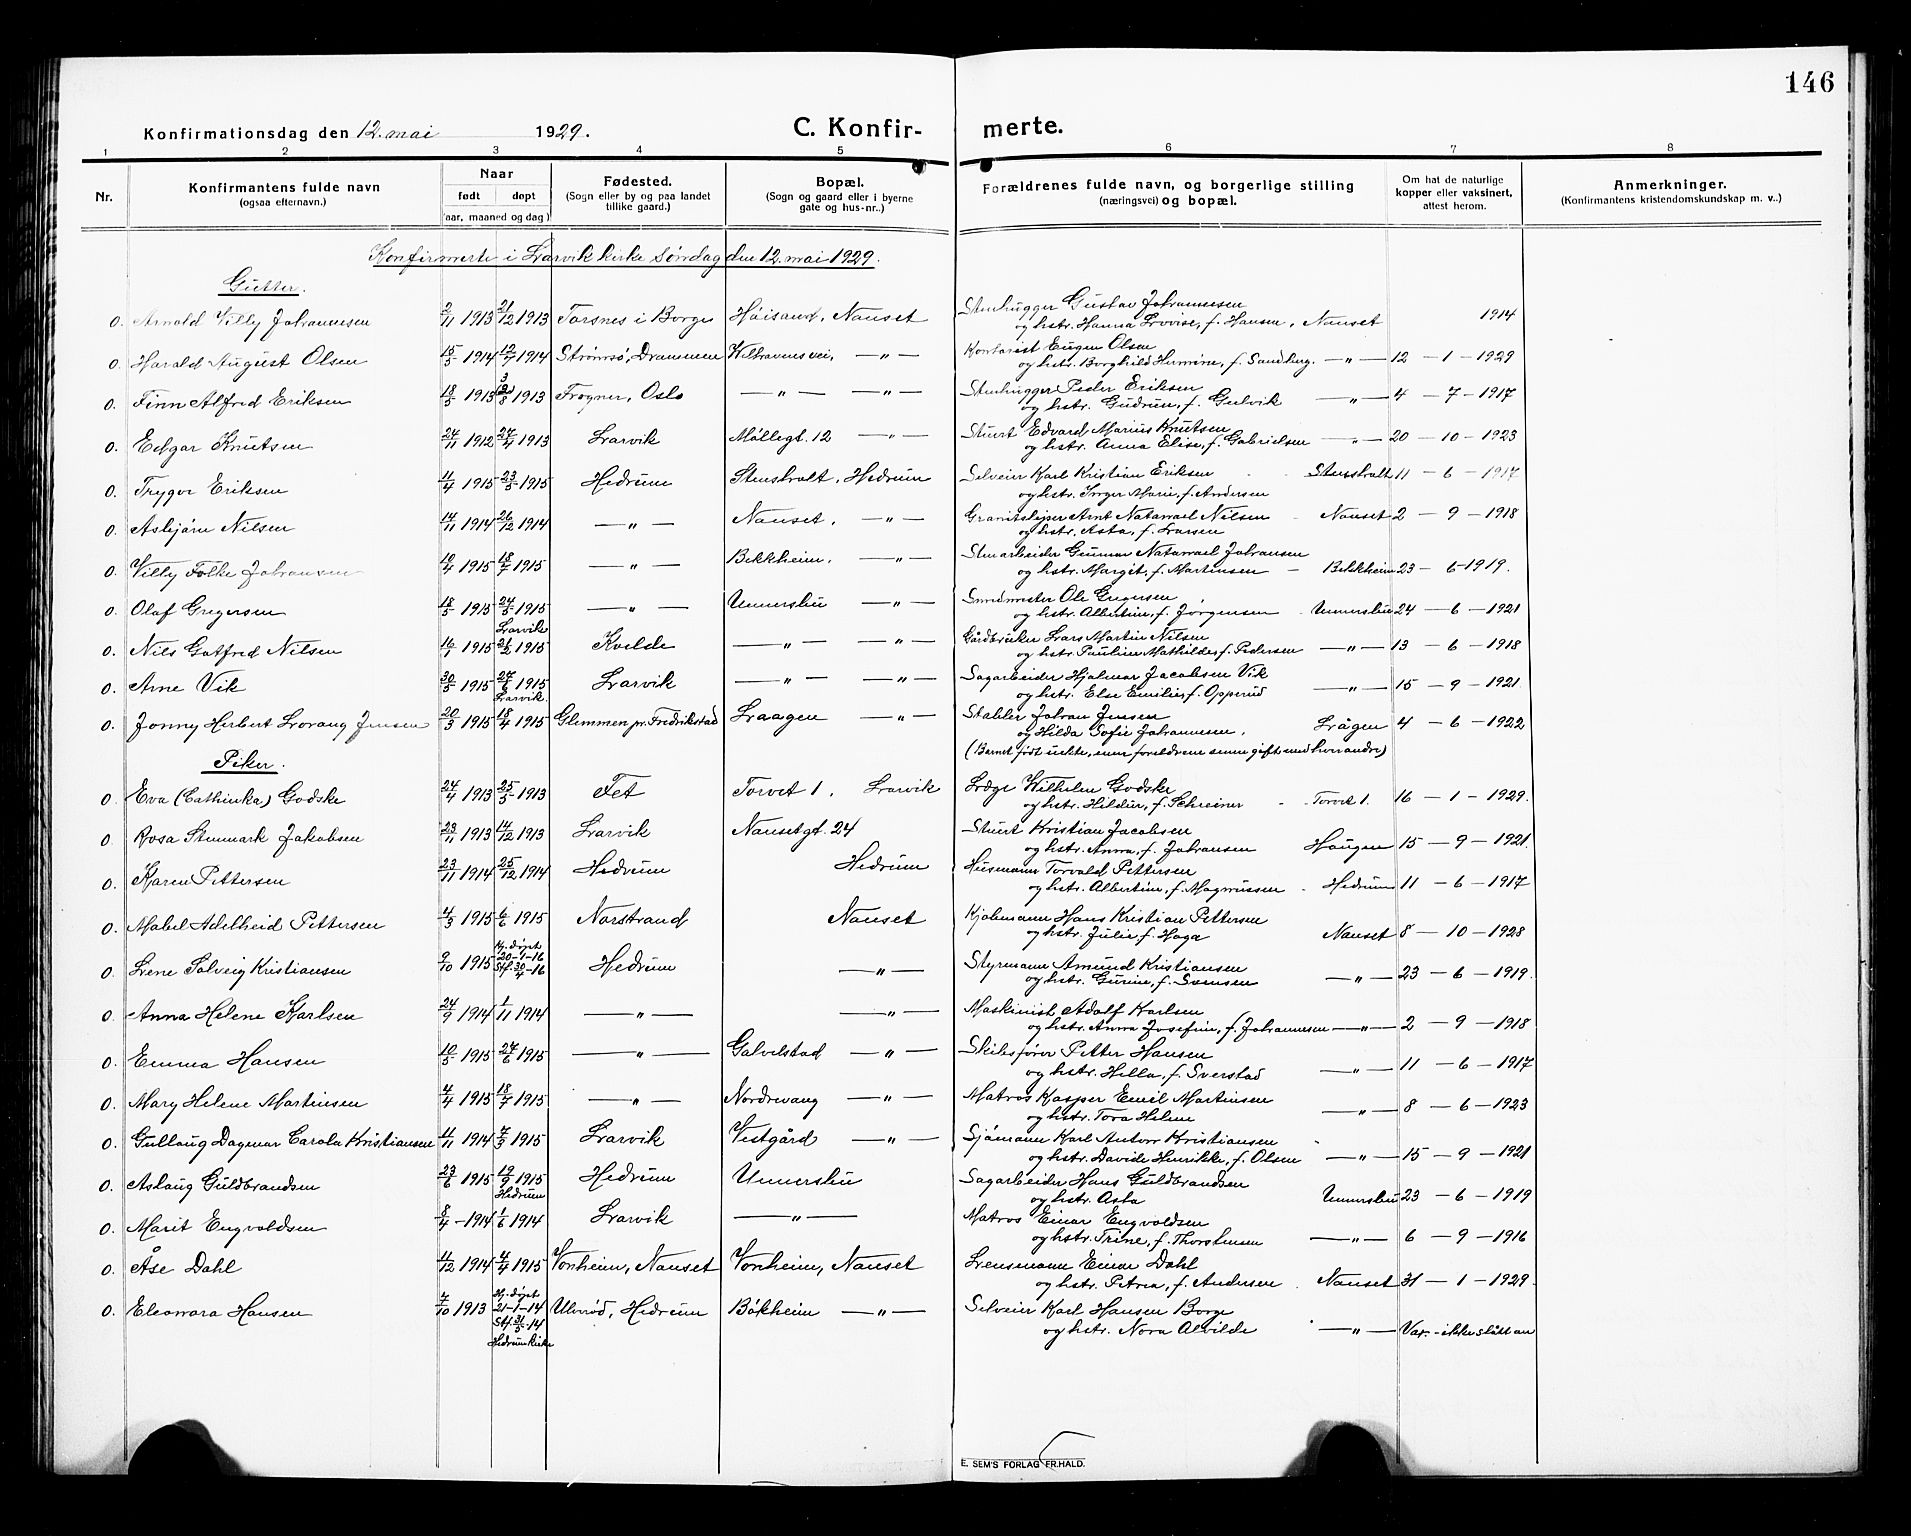 146
Konfirmationsdag den 12. mai 1929.
C. Konfirmerte.
1 2 3 4 5 6 7 8
Nr.
Konfirmantens fulde navn
(ogsaa efternavn.)
Naar
født døpt
(aar, maaned og dag)
Fødested.
(Sogn eller by og paa landet
tillike gaard.)
Bopæl.
(Sogn og gaard eller i byerne
gate og hus-nr..)
Forældrenes fulde navn, og borgerlige stilling
(næringsvei) og bopæl.
Om hat de naturlige
kopper eller vaksinert,
attest herom.
Anmerkninger.
(Konfirmantens kristendomskundskap m. v..)
Konfirmerte i Larvik kirke søndag den 12. mai 1929.
Gutter.
0. Arnold Villy Johannesen 2/11 1913 21/12 1913 Torsnes i Borge Høisand, Nanset Stenhugger Gustav Johannesen
og hstr. Hanna Lovise, f. Hansen, Nanset 1914
0. Harald August Olsen 15/5 1914 12/7 1914 Strømsø, Drammen —„— Kontorist Eugen Olsen
og hstr. Borghild Hermine, f. Sandberg. —„— 12 – 1 – 1929
0. Finn Alfred Eriksen 18/5 1913 3/8 1913 Frogner, Oslo —„— —„— Stenhugger Peder Eriksen
og hstr. Gudrun, f. Gulvik —„— 4 – 7 – 1917
0. Edgar Knutsen 24/11 1912 27/4 1913 Larvik Møllegt. 12 —„— Stuert Edvard Marius Knutsen
og hstr. Anna Elise, f. Gabrielsen —„— 20 – 10 – 1923
0. Trygve Eriksen 11/4 1915 23/5 1915 Hedrum Stensholt, Hedrum Selveier Karl Kristian Eriksen Stensholt 11 – 6 – 1917
og hstr. Inger Marie, f. Andersen
0. Asbjørn Nilsen 14/11 1914 26/12 1914 —„— Nanset, —„— Granitsliper Arnt Natanael Nilsen Nanset 2 – 9 – 1918
og hstr. Asta, f. Larsen
0. Villy Folke Johansen 10/4 1915 18/7 1915 —„— Bekkheim, —„— Stenarbeider Gunnar Natanael Johansen
og hstr. Margit, f. Martinsen – Bekkheim 23 – 6 – 1919.
0. Olaf Gregersen 18/5 1915 24/5 1915 —„— Unnersbu —„— Smedmester Ole Gregersen
Larvik og hstr. Albertine, f. Jørgensen Unnersbu 24 – 6 – 1921
0. Nils Gotfred Nilsen 16/1 1915 21/2 1915 Kvelde —„— —„— Gårdbruker Lars Martin Nilsen
og hstr. Pauline Mathilde, f. Pedersen —„— 13 – 6 – 1918
0. Arne Vik 30/5 1915 27/6 1915 Larvik —„— —„— Sagarbeider Hjalmar Jacobsen Vik
Larvik og hstr. Else Emilie, f. Opperud —„— 15 – 9 – 1921
0. Jonny Herbert Lorang Jensen 20/3 1915 18/4 1915 Glemmen pr. Fredrikstad Laagen —„— Stabler Johan Jensen
og Hilda Sofie Johannesen, Lågen 4 – 6 – 1922
(Barnet født uekte, men foreldrene senere gift med hverandre)
Piker.
0. Eva (Cathinka) Godske 24/4 1913 25/5 1913 Fet Torvet 1, Larvik Læge Wilhelm Godske
og hstr. Hildur, f. Schreiner Torvet 1. 16 – 1 – 1929.
0. Rosa Stenmark Jakobsen 23/11 1913 14/12 1913 Larvik Nansetgt. 24 Stuert Kristian Jacobsen
og hstr. Anna, f. Johansen Haugen 15 – 9 – 1921.
0. Karen Pettersen 23/11 1914 25/12 1914 Hedrum Hedrum Husmann Torvald Pettersen
og hstr. Albertine, f. Magnussen Hedrum 11 – 6 – 1917
0. Mabel Adelheid Pettersen 4/3 1915 6/6 1915 Norstrand Nanset Kjølemann Hans Kristian Pettersen
og hstr. Julie f. Haga Nanset 8 – 10 – 1928
Hj. døpt
0. Lene Solveig Kristiansen 9/10 1915 20-1-16 Hedrum —„— Styrmann Amund Kristiansen
Stf. 30/4-16 og hstr. Gurine, f. Svensen —„— 23 – 6 – 1919.
0. Anna Helene Karlsen 24/9 1914 1/11 1914 —„— —„— Maskinist Adolf Karlsen
og hstr. Anna Josefine, f. Johannesen —„— 2 – 9 – 1918
0. Emma Hansen 10/5 1915 27/6 1915 —„— Galvelstad —„— Skibsfører Petter Hansen
og hstr. Hilla, f. Sverstad —„— 11 – 6 – 1917
0. Mary Helene Martinsen 4/4 1915 18/7 1915 —„— Nordrevang —„— Matros Kasper Emil Martinsen
og hstr. Tora Helene —„— 8 – 6 – 1923
0. Gullaug Dagmar Carola Kristiansen 11/11 1914 7/3 1915 Larvik Vestgård —„— Sjømann Karl Anton Kristiansen
og hstr. Davide Henrikke, f. Olsen —„— 15 – 9 – 1921
0. Aslaug Guldbrandsen 23/6 1915 19/9 1915 Hedrum Unnersbu Sagarbeider Hans Guldbrandsen
Hedrum og hstr. Asta Unnersbu 23 – 6 – 1919
0. Marit Engvoldsen 8/4 – 1914 1/6 1914 Larvik —„— Matros Einar Engvoldsen
og hstr. Trine, f. Thorstensen —„— 6 – 9 – 1916
0. Åse Dahl 11/12 1914 4/4 1915 Vonheim, Nanset Vonheim, Nanset Lensmann Einar Dahl
og hstr. Petrea, f. Andersen Nanset 31 – 1 – 1929.
Hj. døpt
0. Eleonora Hansen 7/10 1913 21-1-14 Ulvrød, Hedrum Bøkheim —„— Selveier Karl Hansen Borge
Stf. 31/5-14 og hstr. Nora Alvilde —„— Vax. ikke slått an
Hedrum kirke
E. SEM'S FORLAG FR.HALD.